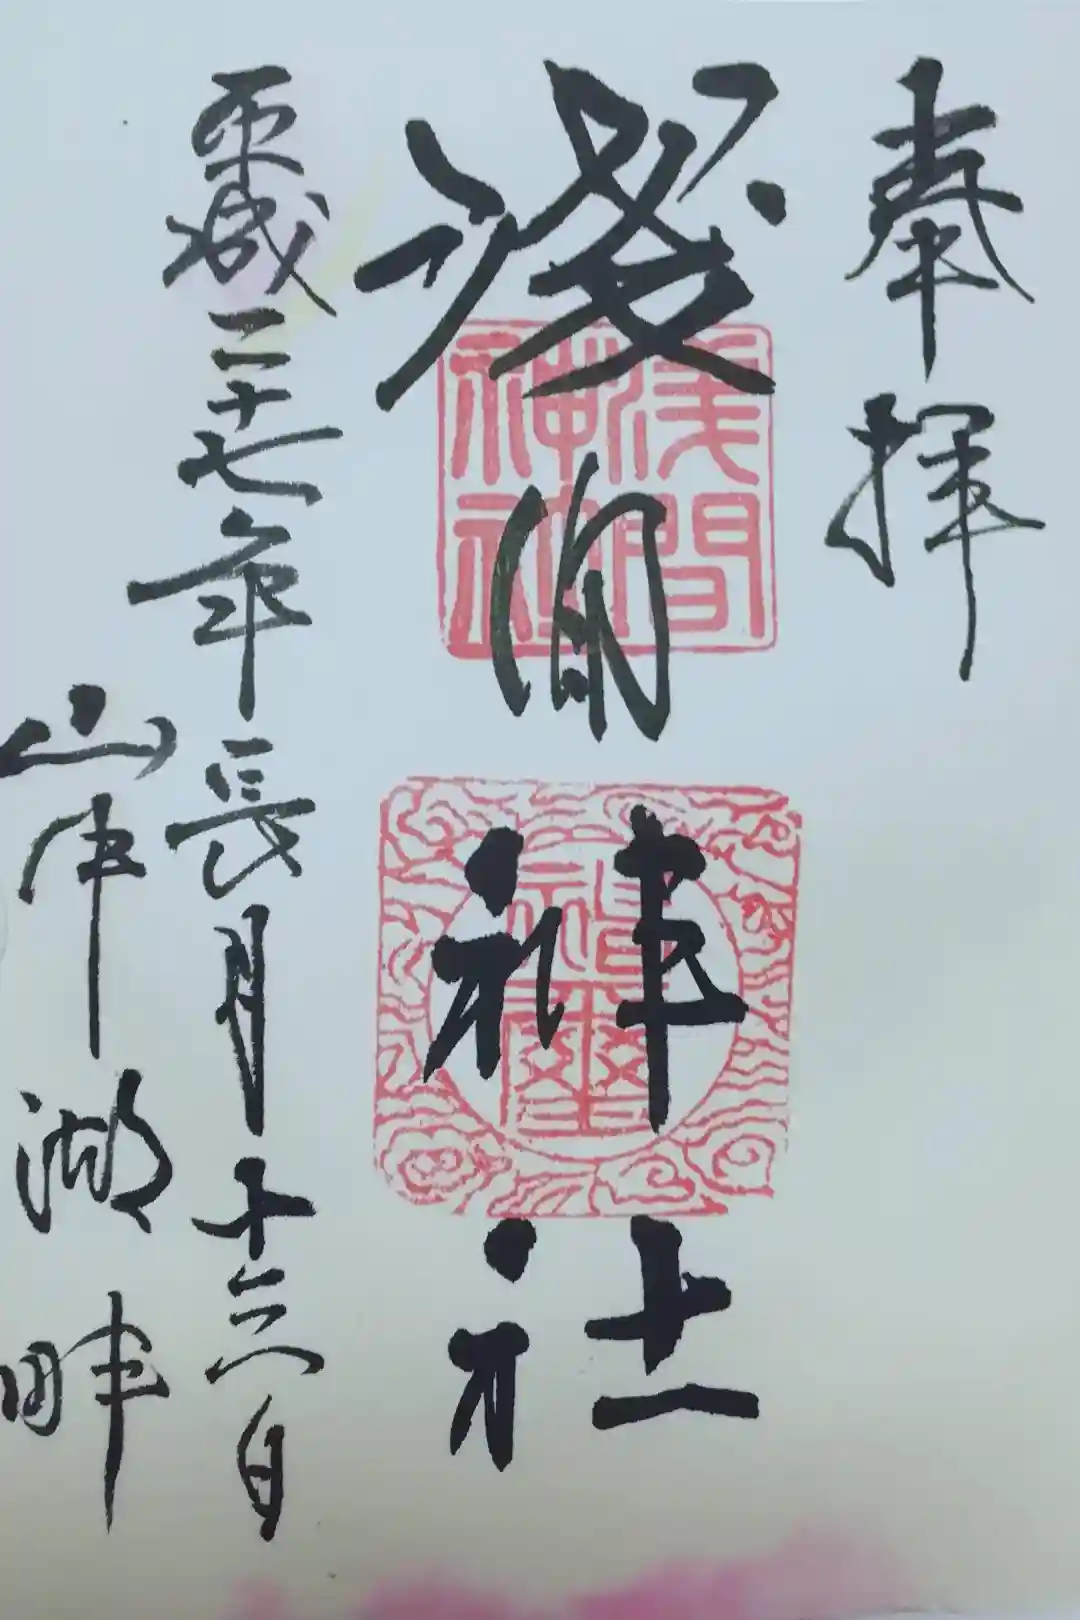 奉拝
淺間神社
浅間
神社
平成二十七年長月十六日
山中湖畔